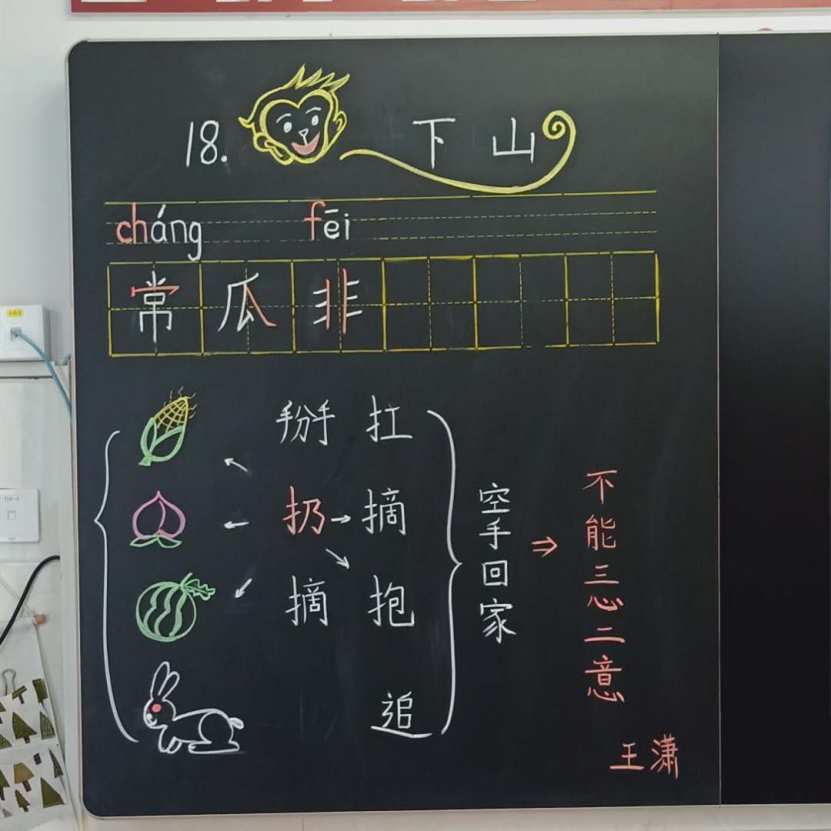 18. 下山
cháng fēi
常瓜非
掰 扛
扔 摘
摘 抱
追
空手回家
不能三心二意
王潇